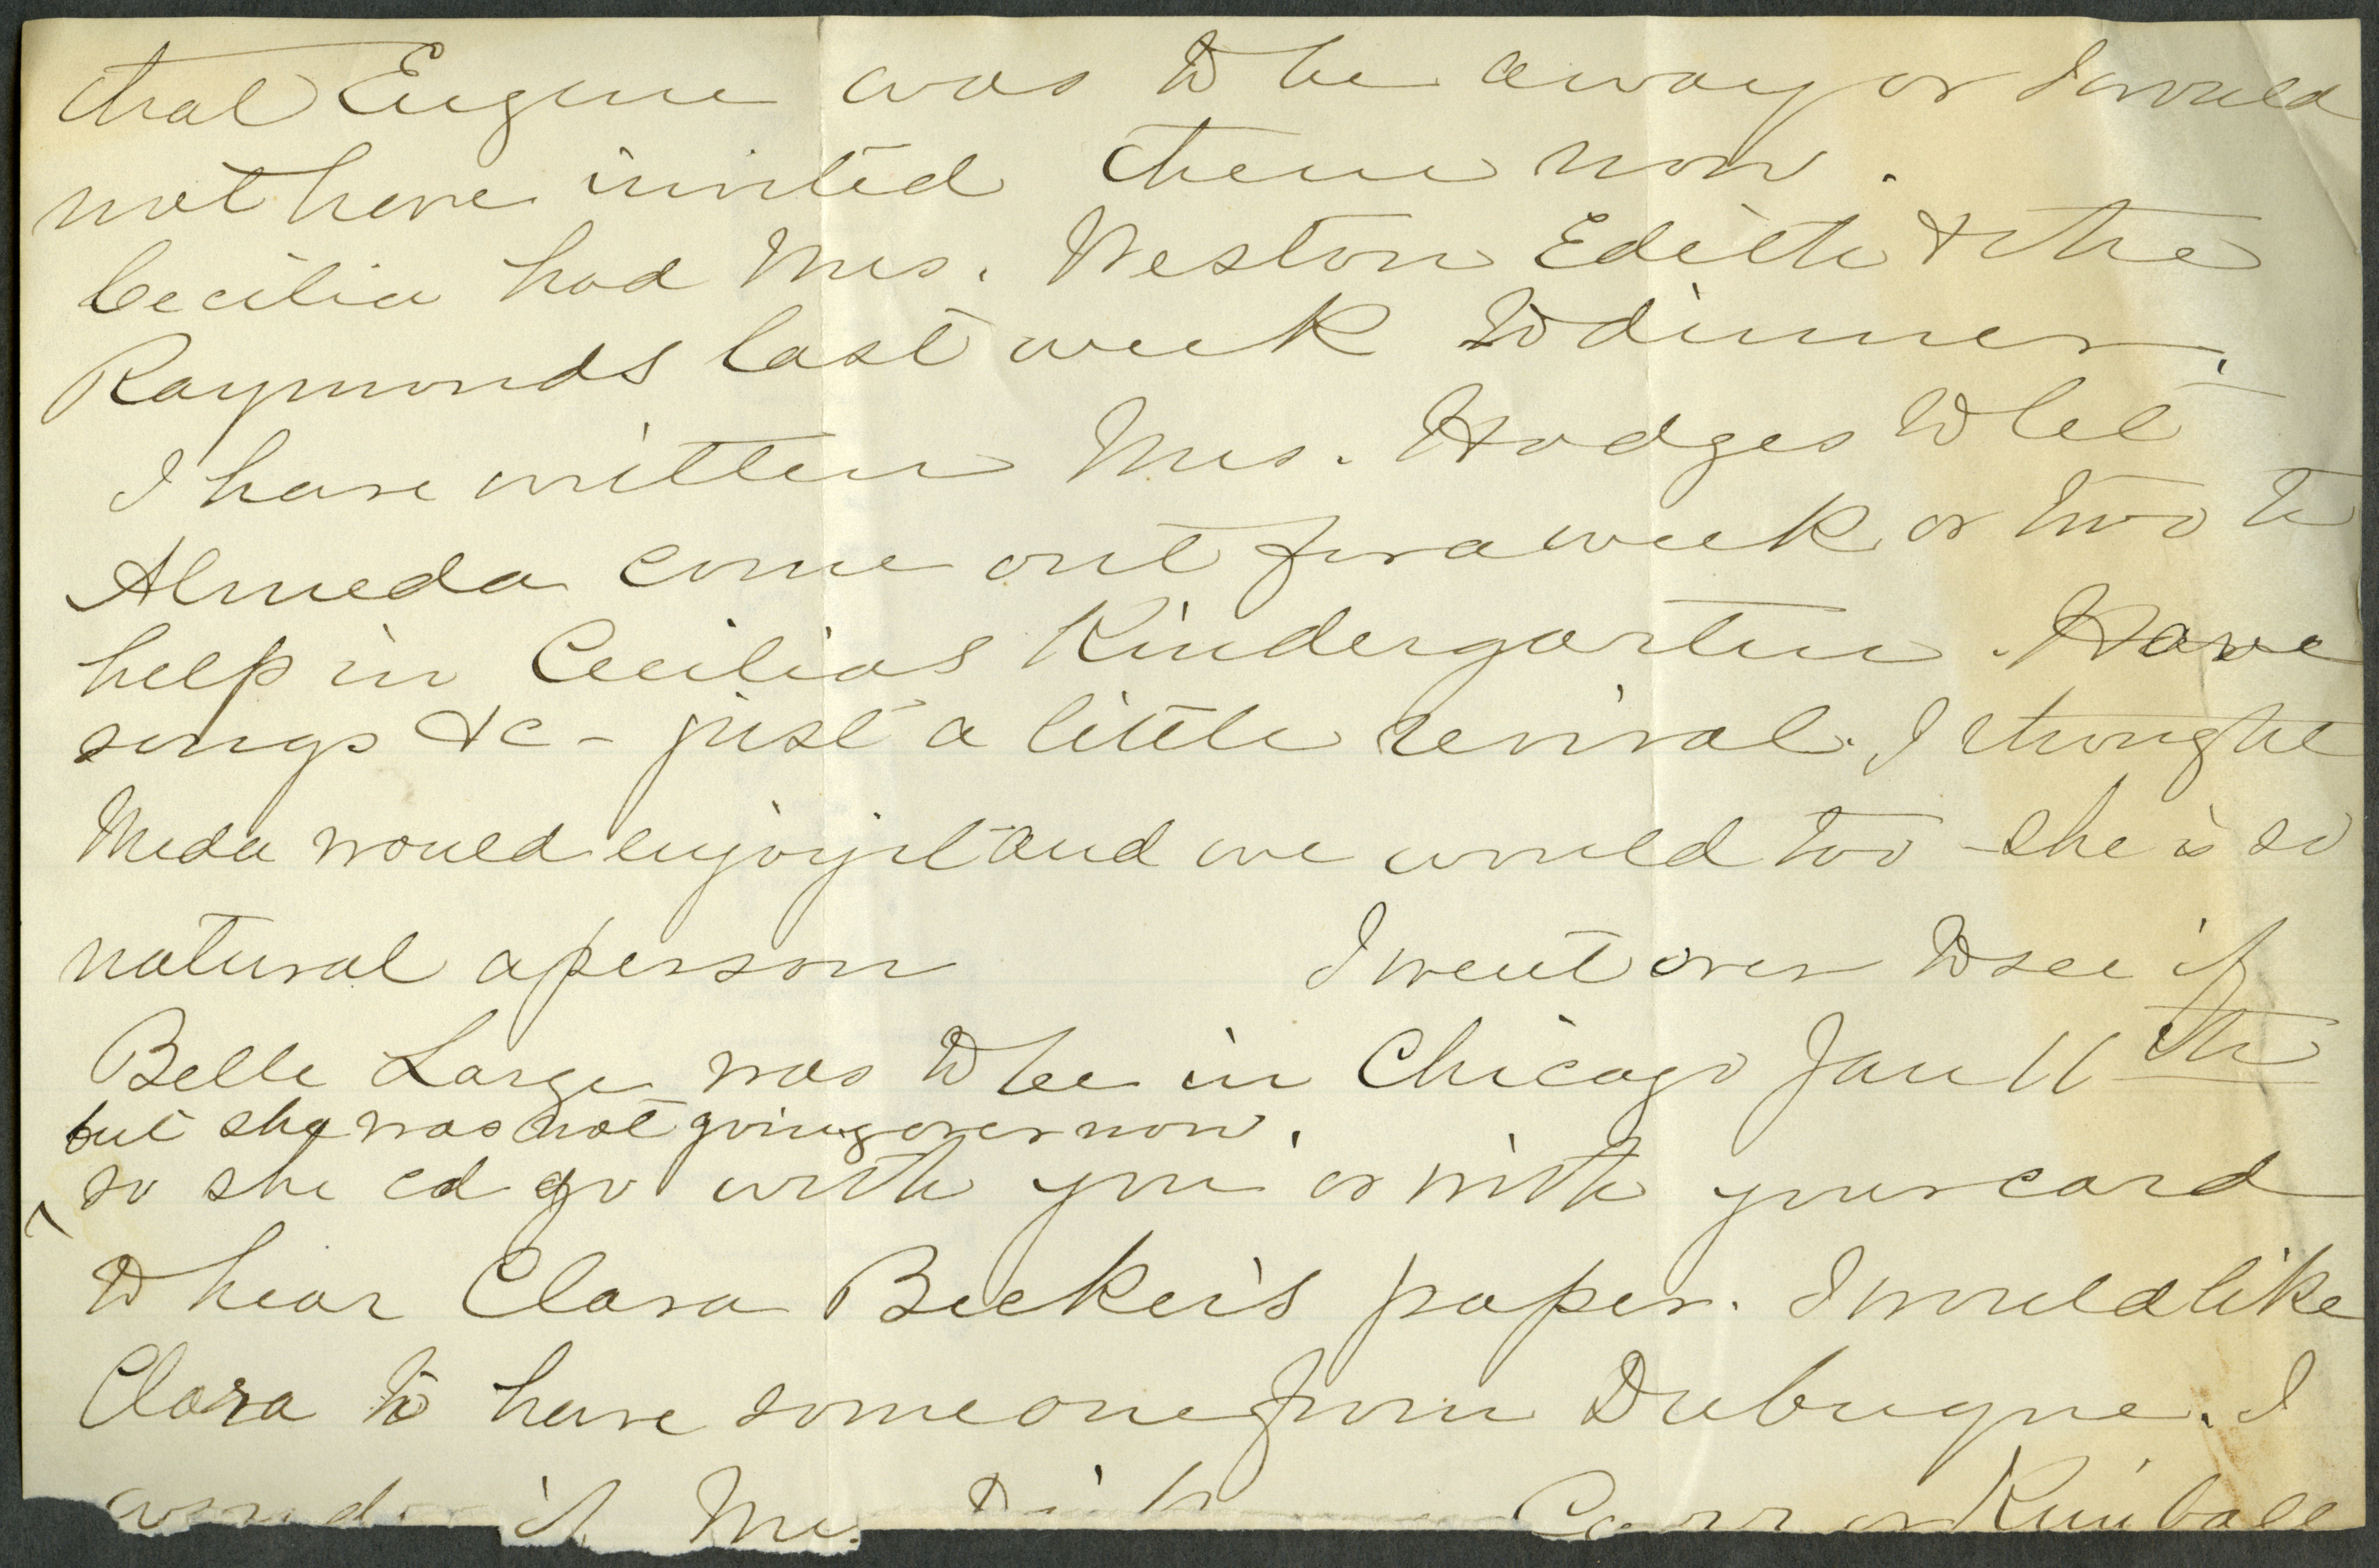 that Eugene was to be away or I would
not have invited them now.
Cecilia had Mrs. Weston Edith & the
Raymonds last week to dinner.
I have written Mrs. Hodges to let
Almeda come out for a week or two to
help in Cecilias Kindergarten. Have
songs &c - just a little revival. I thought
Meda would enjoy it and we would too - she is so
natural a person I went over to see if
Belle Large was to be in Chicago Jan 11th
but she was not going over now.
so she cd go with you or with your card
to hear Clara Beeker's paper. I would like
Clara to have someone from Dubuque. I
if Carr or Kimball